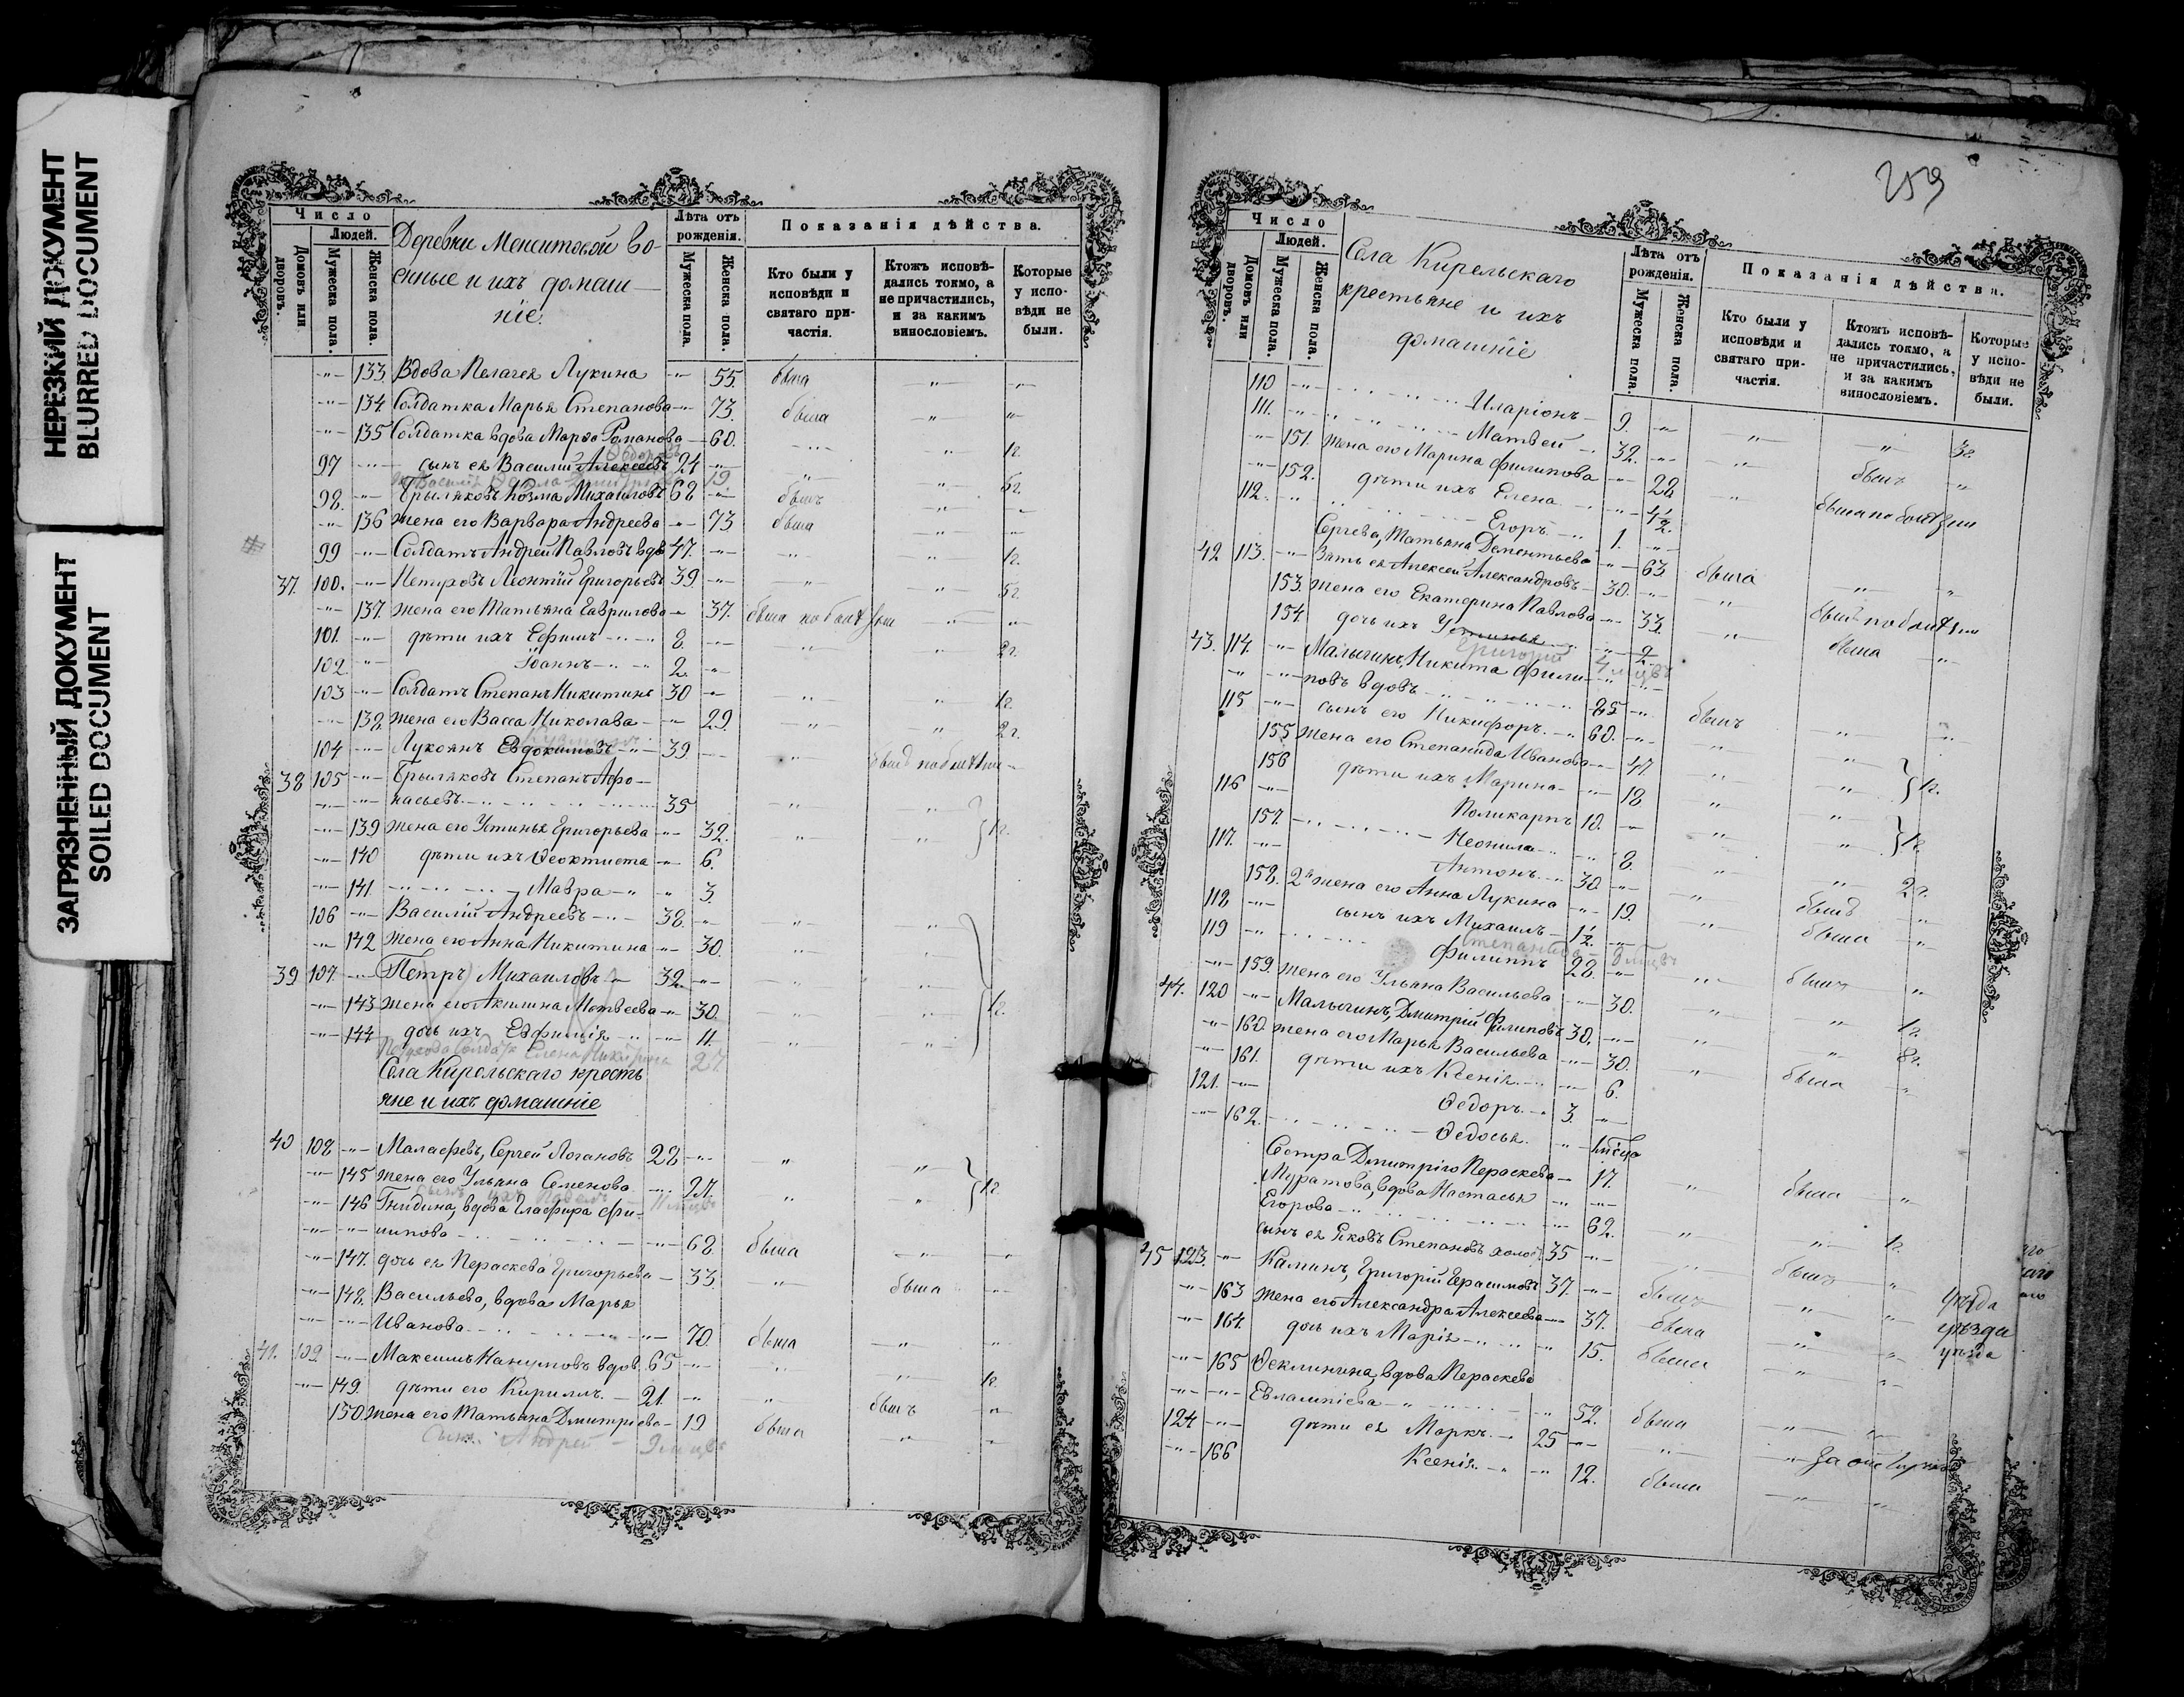 НЕРЕЗКИЙ ДОКУМЕНТ
BLURRED DOCUMENT
ЗАГРЯЗНЕННЫЙ ДОКУМЕНТ
SOILED DOCUMENT
Число
Людей.
Домовъ или дворовъ.
Мужеска пола.
Женска пола.
Деревни Менситовой во-
енные и ихъ домаш-
ніе.
Лѣта отъ рожденія.
Мужеска пола.
Женска пола.
Показанія дѣйства.
Кто были у исповѣди и святаго причастія.
Ктожъ исповѣдались токмо, а не причастились, и за какимъ винословіемъ.
Которые у исповѣди не были.
133 Вдова Пелагея Лукина 55 была
134 Солдатка Марья Степанова 73. была
135 Солдатка вдова Марѳа Романова 60. 1г.
97 сынъ ея Василій Алексеевъ 24
98. Козма Михаиловъ 68 былъ
136 жена его Варвара Андреева 73 была
99 Солдатъ Андрей Павловъ вдов 47. 1г.
37. 100. Петуховъ Леонтій Григорьевъ 39 5г.
137. жена его Татьяна Гаврилова 37. была
101. дѣти ихъ Ефимъ 8. 2г.
102. Іоаннъ 2.
103 Солдатъ Степанъ Никитинъ 30 1г.
138. жена его Васса Николава 29. 2г.
104 Лукоянъ Евдокимовъ 39.
38 105 Степанъ Афо-
насьевъ 35
139 жена его Устинья Григорьева 32. 1г.
140 дѣти ихъ Ѳеоктиста 6.
141 Мавра 3.
106 Василій Андреевъ 38.
142 жена его Анна Никитина 30.
39 107. Петръ Михаиловъ 32.
143 жена его Акилина Матвеева 30. 1г.
144 дочь ихъ Евфимія 11.
Села Кирельскаго кресть
яне и ихъ домашніе
40 108 Малафевъ, Сергей Логановъ 28
145 жена его Ульяна Семенова 1г.
146 Гнидина, вдова Глафира Фи-
липова 68. была
147. дочь ея Параскева Григорьева 33. была
148. Васильева, вдова Марья
Иванова 70. была
41. 109. Максимъ Наумовъ вдов. 65 1г.
149. дѣти его Кирилъ 21. былъ
150. жена его Татьяна Дмитріева 19 была
сынъ Андрей
259
Число
Людей.
Домовъ или дворовъ.
Мужеска пола.
Женска пола.
Села Кирельскаго
крестьяне и ихъ
домашніе
Лѣта отъ рожденія.
Мужеска пола.
Женска пола.
Показанія дѣйства.
Кто были у исповѣди и святаго причастія.
Ктожъ исповѣдались токмо, а не причастились, и за какимъ винословіемъ.
Которые у исповѣди не были.
110 Иларіонъ 9. 3г.
111. Матвей 32. былъ
151. жена его Марина Филипова 28 была
152. дѣти ихъ Елена 4½.
112. Егоръ 1.
Сергева, Татьяна Дементьева 63 была
42 113. Зять ея Алексей Александровъ 30. былъ
153. жена его Екатерина Павлова 33. была
154. дочь ихъ Устинья 2.
43. 114. Малыгинъ, Никита Фили-
повъ вдовъ 85 былъ
115 сынъ его Никифоръ 60.
155 жена его Степанида Иванова 47 1г.
156 дѣти ихъ Марина 18
116 Поликарпъ 10. 1г.
157. Неонила 8.
117. Антонъ 30. былъ
158. 2я жена его Анна Лукина 19. была
118 сынъ ихъ Михаилъ 1½.
119 Филиппъ 28. былъ
159. жена его Ульяна Васильева 30. 1г.
44. 120 Малыгинъ, Дмитрій Филиповъ 30. 8г.
160. жена его Марья Васильева 30. была
161. дѣти ихъ Ксенія 6.
121. Ѳедоръ 3.
162. Ѳедосья
Сестра Дмитрія Параскева 17 была
Муратова, вдова Настасья
Егорова 62. 1г.
сынъ ея Яковъ Степановъ холос. 35 былъ
45 123. Каминъ, Григорій Герасимовъ 37. былъ
163 жена его Александра Алексеева 37. была
164. дочь ихъ Марія 15. была
165 Ѳеклинина, вдова Параскева
Евлампіева 52. была
124 дѣти ея Маркъ 25
166 Ксенія 12. была